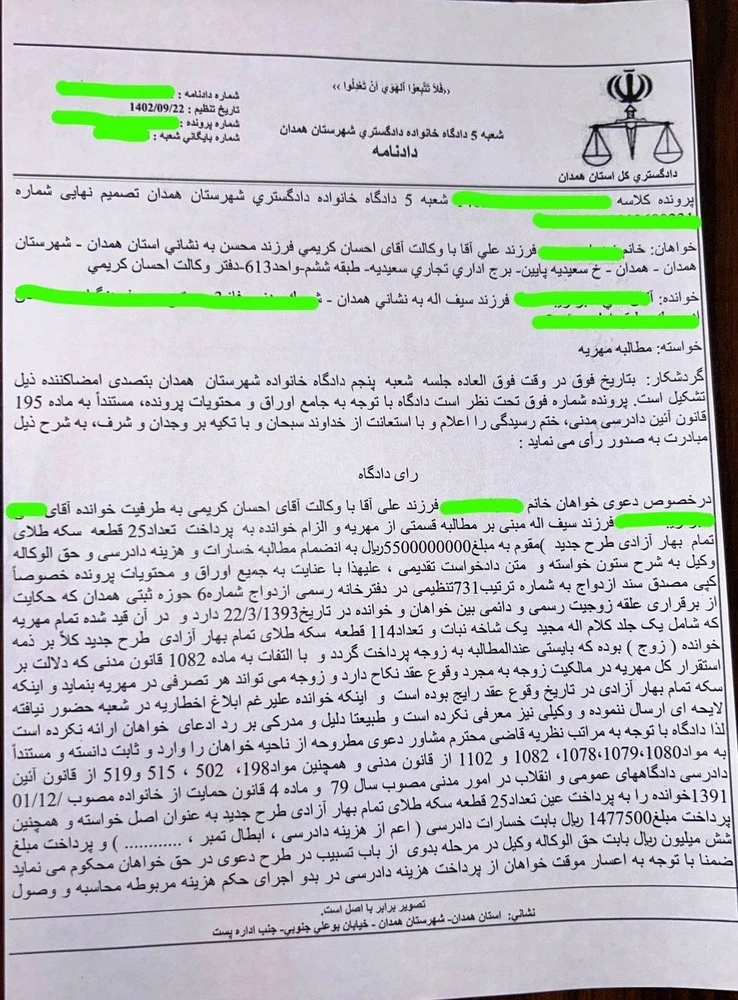 ‹‹فَلا تَتَّبِعُوا اَلهَوي اَنْ تَعْدِلُوا ››
شعبه 5 دادگاه خانواده دادگستري شهرستان همدان
دادنامه
دادگستري کل استان همدان
شماره دادنامه :
تاریخ تنظیم : 1402/09/22
شماره پرونده :
شماره بایگاني شعبه :
پرونده کلاسه شعبه 5 دادگاه خانواده دادگستري شهرستان همدان تصمیم نهایی شماره
خواهان: خانم فرزند علي آقا با وکالت آقای احسان کریمي فرزند محسن به نشاني استان همدان - شهرستان
همدان - همدان - خ سعیدیه پایین- برج اداري تجاري سعیدیه- طبقه ششم-واحد613-دفتر وکالت احسان کریمي
خوانده: فرزند سیف اله به نشاني همدان -
خواسته: مطالبه مهریه
گردشکار: بتاریخ فوق در وقت فوق العاده جلسه شعبه پنجم دادگاه خانواده شهرستان همدان بتصدی امضاکننده ذیل
تشکیل است. پرونده شماره فوق تحت نظر است دادگاه با توجه به جامع اوراق و محتویات پرونده، مستنداً به ماده 195
قانون آئین دادرسی مدنی، ختم رسیدگی را اعلام و با استعانت از خداوند سبحان و با تکیه بر وجدان و شرف، به شرح ذیل
مبادرت به صدور رأی می نماید :
رای دادگاه
درخصوص دعوی خواهان خانم فرزند علي آقا با وکالت آقای احسان کریمی به طرفیت خوانده آقای
فرزند سیف اله مبنی بر مطالبه قسمتی از مهریه و الزام خوانده به پرداخت تعداد25 قطعه سکه طلای
تمام بهار آزادی طرح جدید )مقوم به مبلغ5500000000ریال به انضمام مطالبه خسارات و هزینه دادرسی و حق الوکاله
وکیل به شرح ستون خواسته و متن دادخواست تقدیمی ، علیهذا با عنایت به جمیع اوراق و محتویات پرونده خصوصاً
کپی مصدق سند ازدواج به شماره ترتیب731تنظیمی در دفترخانه رسمی ازدواج شماره6 حوزه ثبتی همدان که حکایت
از برقراری علقه زوجیت رسمی و دائمی بین خواهان و خوانده در تاریخ22/3/1393 دارد و در آن قید شده تمام مهریه
که شامل یک جلد کلام اله مجید یک شاخه نبات و تعداد114 قطعه سکه طلای تمام بهار آزادی طرح جدید کلاً بر ذمه
خوانده ( زوج ) بوده که بایستی عندالمطالبه به زوجه پرداخت گردد و با التفات به ماده 1082 قانون مدنی که دلالت بر
استقرار کل مهریه در مالکیت زوجه به مجرد وقوع عقد نکاح دارد و زوجه می تواند هر تصرفی در مهریه بنماید و اینکه
سکه تمام بهار آزادی در تاریخ وقوع عقد رایج بوده است و اینکه خوانده علیرغم ابلاغ اخطاریه در شعبه حضور نیافته
لایحه ای ارسال ننموده و وکیلی نیز معرفی نکرده است و طبیعتا دلیل و مدرکی بر رد ادعای خواهان ارائه نکرده است
لذا دادگاه با توجه به مراتب نظریه قاضی محترم مشاور دعوی مطروحه از ناحیه خواهان را وارد و ثابت دانسته و مستنداً
به مواد1078،1079،1080، 1082 و 1102 از قانون مدنی و همچنین مواد198، 502 ، 515 و519 از قانون آئین
دادرسی دادگاههای عمومی و انقلاب در امور مدنی مصوب سال 79 و ماده 4 قانون حمایت از خانواده مصوب /01/12
1391خوانده را به پرداخت عین تعداد25 قطعه سکه طلای تمام بهار آزادی طرح جدید به عنوان اصل خواسته و همچنین
پرداخت مبلغ1477500 ریال بابت خسارات دادرسی ( اعم از هزینه دادرسی ، ابطال تمبر ، ............ ) و پرداخت مبلغ
شش میلیون ریال بابت حق الوکاله وکیل در مرحله بدوی از باب تسبیب در طرح دعوی در حق خواهان محکوم می نماید
ضمنا با توجه به اعسار موقت خواهان از پرداخت هزینه دادرسی در بدو اجرای حکم هزینه مربوطه محاسبه و وصول
تصویر برابر با اصل است.
نشاني: استان همدان- شهرستان همدان - خیابان بوعلي جنوبي- جنب اداره پست